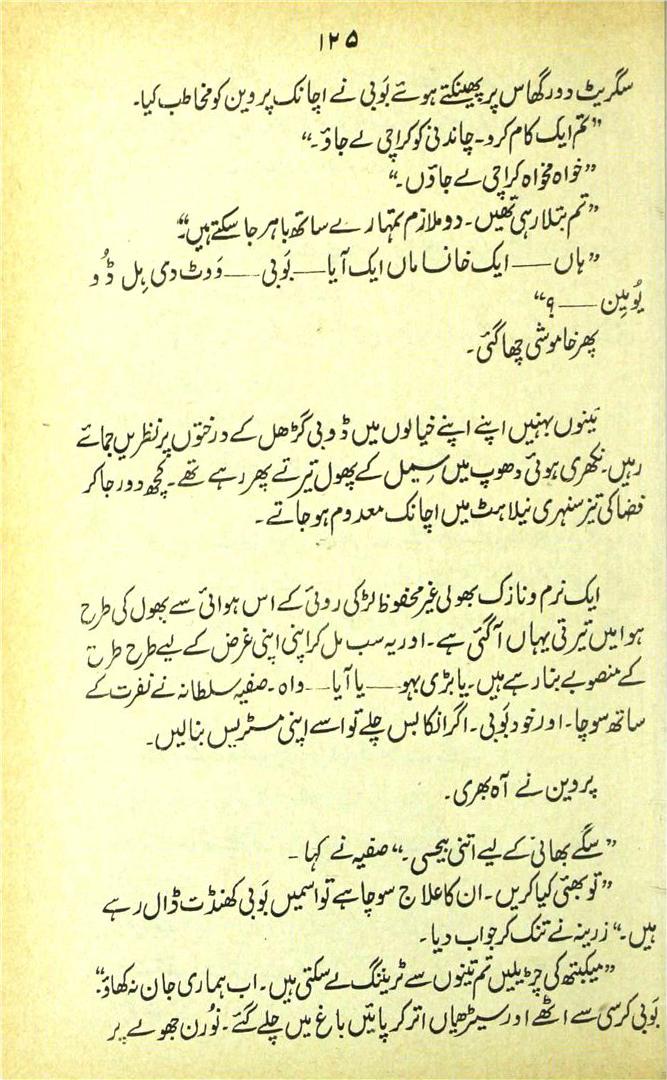 ۱۲۵
سگریٹ دور گھاس پر پھینکتے ہوئے بَوبی نے اچانک پروین کو مخاطب کیا۔
”تم ایک کام کرو۔ چاندنی کو کراچی لے جاؤ۔“
”خواہ مخواہ کراچی لے جاؤں۔“
”تم بتلا رہی تھیں۔ دو ملازم تمہارے ساتھ باہر جا سکتے ہیں۔“
”ہاں —— ایک خانساماں ایک آیا —— بَوبی —— وَوٹ دی ہِل ڈُو
یُو مِین —— ؟“
پھر خاموشی چھا گئی۔
تینوں بہنیں اپنے اپنے خیالوں میں ڈوبی گڑھل کے درختوں پر نظریں جمائے
رہیں۔ نکھری ہوئی دھوپ میں سیمل کے پھول تیرتے پھر رہے تھے۔ کچھ دور جا کر
فضا کی تیز سنہری نیلاہٹ میں اچانک معدوم ہو جاتے۔
ایک نرم و نازک بھولی غیر محفوظ لڑکی روئی کے اس ہوائی سے پھول کی طرح
ہوا میں تیرتی یہاں آگئی ہے۔ اور یہ سب مل کر اپنی اپنی غرض کے لیے طرح طرح
کے منصوبے بنا رہے ہیں۔ یا بڑی بہو —— یا آیا —— واہ۔ صفیہ سلطانہ نے نفرت کے
ساتھ سوچا۔ اور خود بَوبی۔ اگر انکا بس چلے تو اسے اپنی مسٹریس بنالیں۔
پروین نے آہ بھری۔
”سگے بھائی کے لیے اتنی بیحسی۔“ صفیہ نے کہا۔
”تو بھئی کیا کریں۔ ان کا علاج سوچا ہے تو اسمیں بَوبی کھنڈت ڈال رہے
ہیں۔“ زرینہ نے تنک کر جواب دیا۔
”میکبتھ کی چڑیلیں تم تینوں سے ٹریننگ لے سکتی ہیں۔ اب ہماری جان نہ کھاؤ۔“
بَوبی کرسی سے اٹھے اور سیڑھیاں اتر کر پائیں باغ میں چلے گئے۔ نُورن جھولے پر